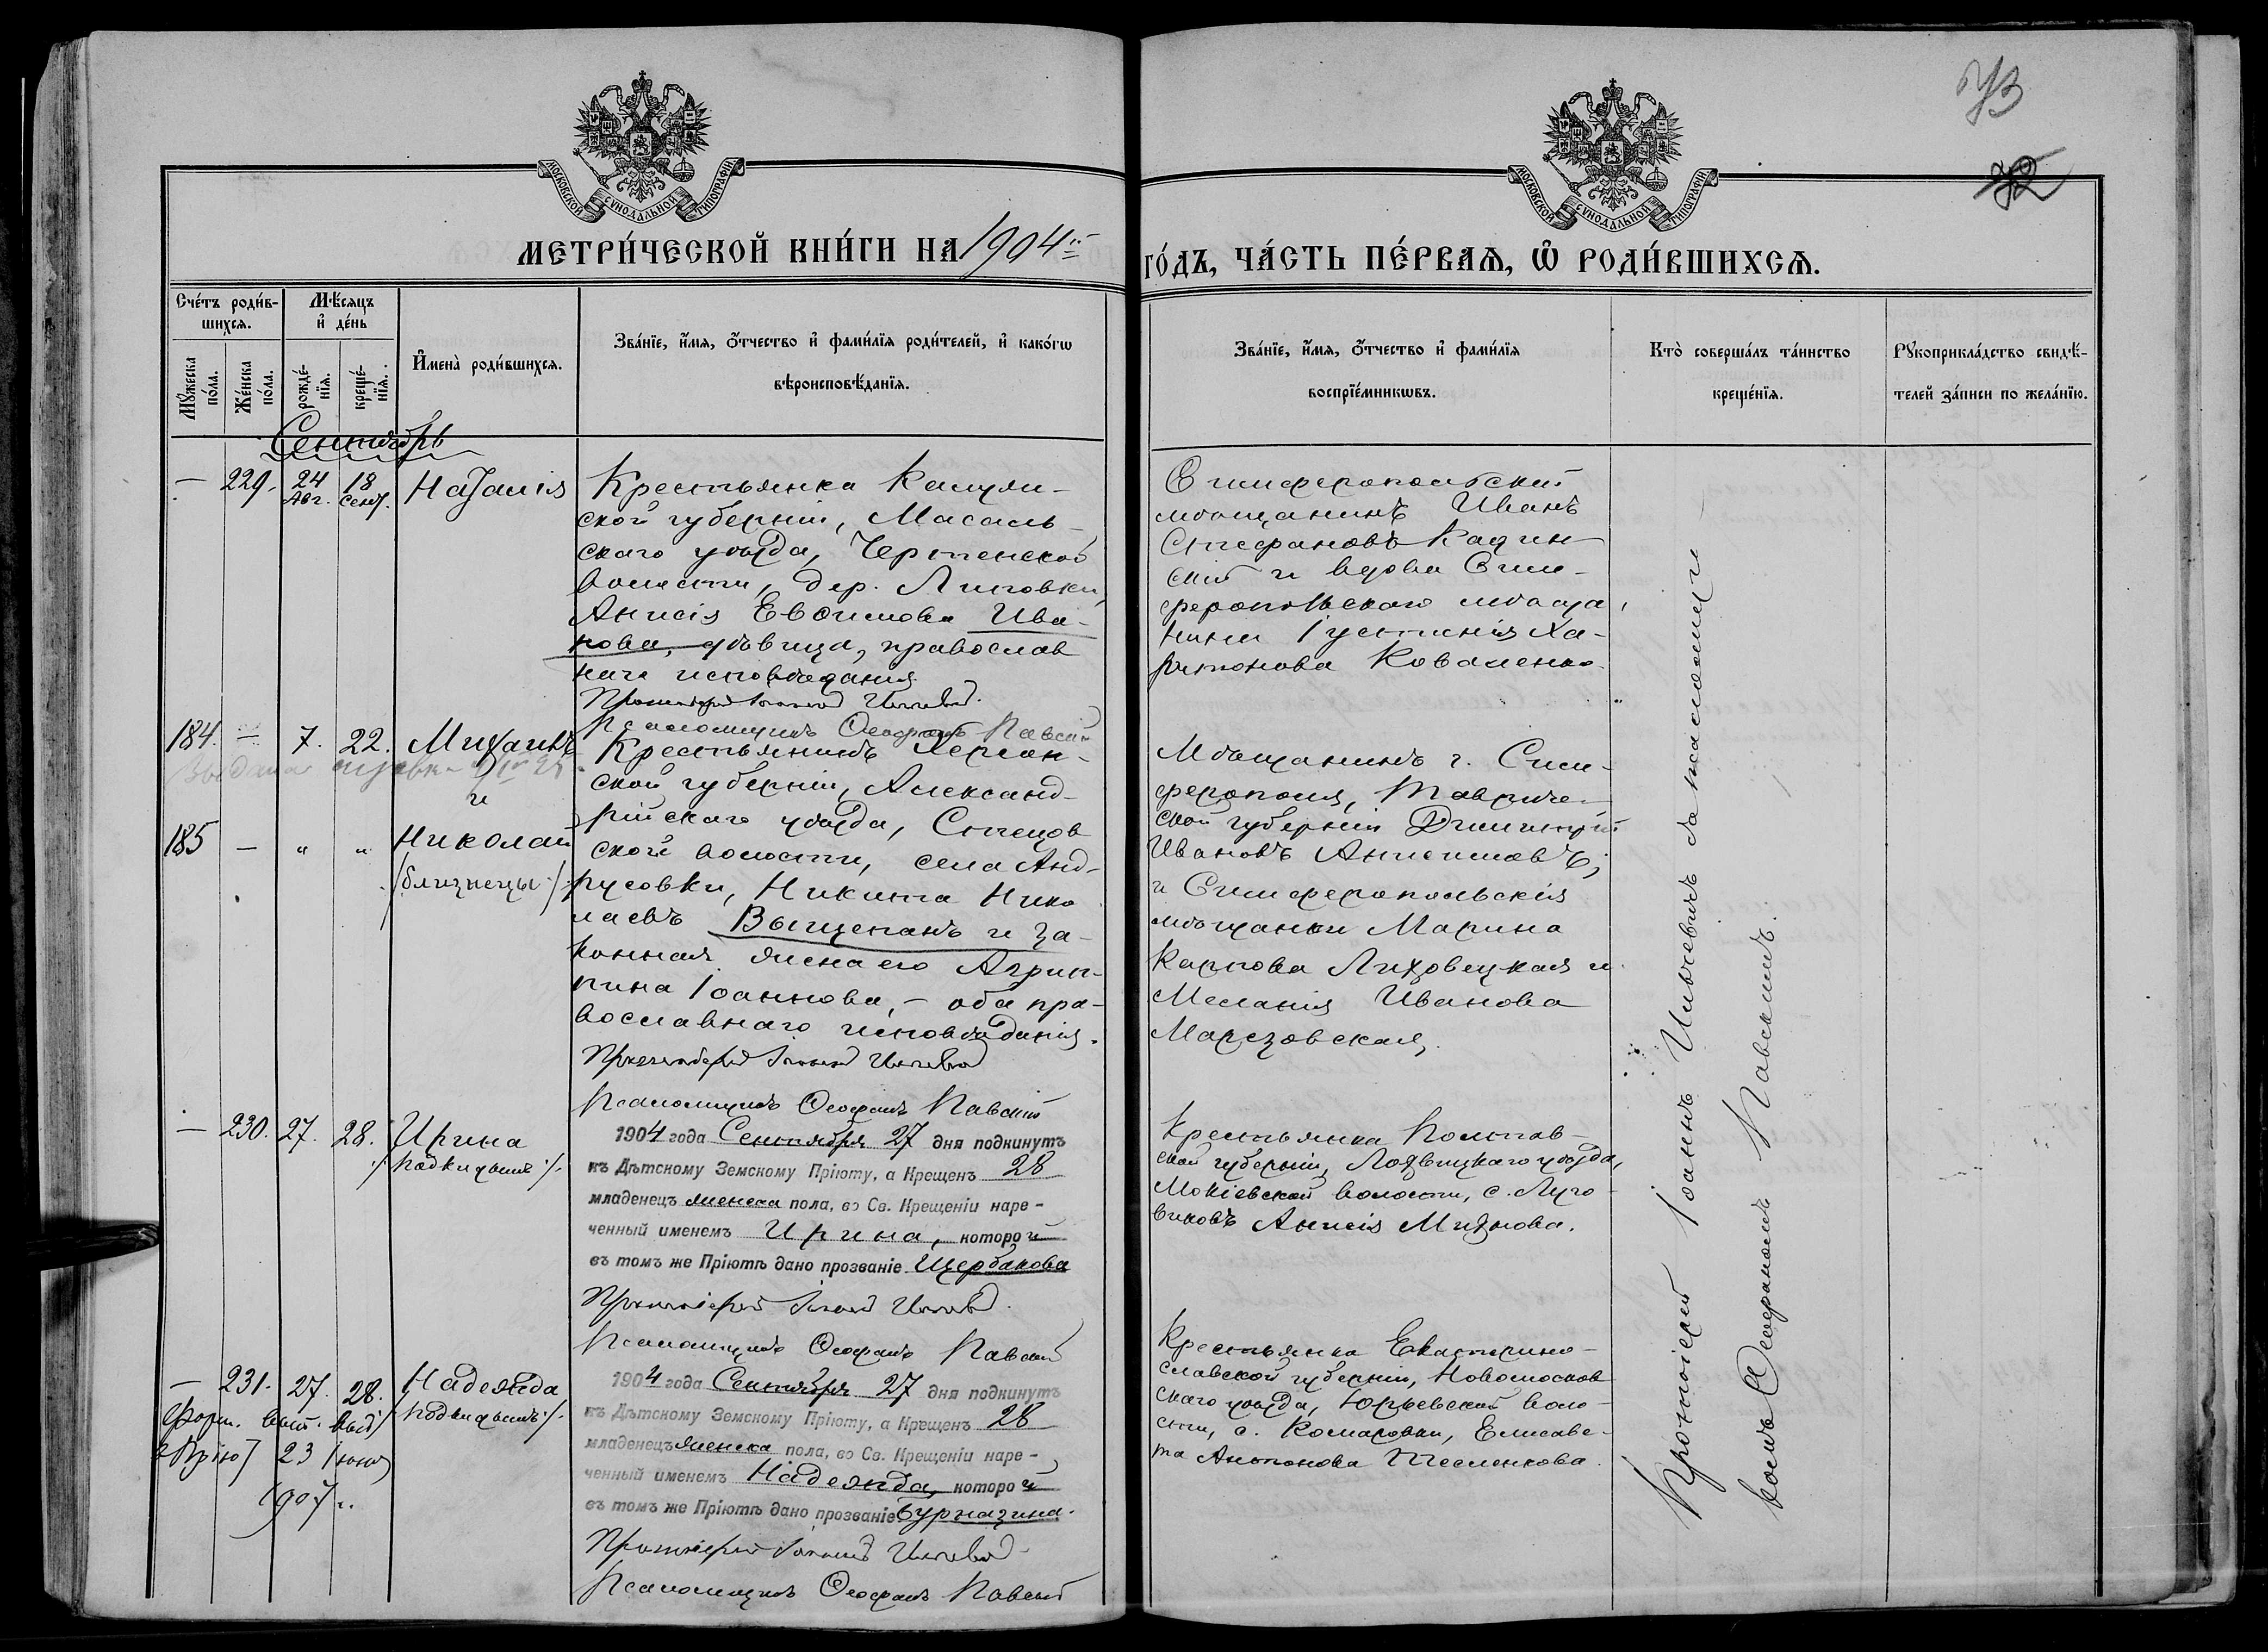 73
72
МОСКОВСКОЙ СѴНОДАЛЬНОЙ ТИПОГРАФІИ
МОСКОВСКОЙ СѴНОДАЛЬНОЙ ТИПОГРАФІИ
МЕТРИ́ЧЕСКОЙ КНИ́ГИ НА 1904й
ГО́ДЪ, ЧА́СТЬ ПЕ́РВАѦ, Ѡ҆ РОДИ́ВШИХСѦ.
Сче́тъ роди́в-
шихсѧ.
Мѣ́сѧцъ
и҆ де́нь
Мꙋ́жеска
по́ла.
Же́нска
по́ла.
рожде́-
нїѧ.
креще́-
нїѧ.
И҆мена̀ роди́вшихсѧ.
Зва́нїе, и҆́мѧ, ѻ҆́тчество и҆ фами́лїѧ роди́телей, и҆ како́гѡ
вѣроисповѣ́данїѧ.
Зва́нїе, и҆́мѧ, ѻ҆́тчество и҆ фами́лїѧ
воспрїе́мникѡвъ.
Кто̀ соверша́лъ та́инство
креще́нїѧ.
Рꙋкоприкла́дство свидѣ́-
телей за́писи по жела́нїю.
Сентябрь
— 229. 24 Авг. 18 Сент. Наталія
Крестьянка Калуж-
ской губерніи, Масаль-
скаго уѣзда, Чертенской
волости, дер. Липовки,
Анисія Евѳимова Ива-
нова, дѣвица, православ
наго исповѣданія
Протоіерей Іоаннъ Ильчевичъ
Псаломщикъ Ѳеофанъ Павскій
Симферопольскій
мѣщанинъ Иванъ
Стефановъ Кадин
скій и вдова Сим-
феропольскаго мѣща
нина Іустинія Ха-
ритонова Коваленко
184. — 7. 22. Михаилъ
Выдана справка
и
185 — " " Николай
/близнецы/
Крестьянинъ Херсон-
ской губерніи, Александ-
рійскаго уѣзда, Стецов
ской волости, села Анд-
русовки, Никита Нико
лаевъ Выщепанъ и за-
конная жена его Агрип-
пина Іоаннова, — оба пра-
вославнаго исповѣданія.
Протоіерей Іоаннъ Ильчевичъ
Псаломщикъ Ѳеофанъ Павскій
Мѣщанинъ г. Сим-
ферополя, Тавриче-
ской губерніи Димитрій
Ивановъ Анисимовъ;
и Симферопольскія
мѣщанки Марина
Карпова Лиховецкая и
Меланія Иванова
Марезовская,
— 230. 27. 28. Ирина
/подкидышъ/.
1904 года Сентября 27 дня подкинутъ
къ Дѣтскому Земскому Пріюту, а Крещенъ 28
младенецъ женска пола, во Св. Крещеніи наре-
ченный именемъ Ирина, которой
въ томъ же Пріютѣ дано прозваніе Щербакова
Протоіерей Іоаннъ Ильчевичъ
Псаломщикъ Ѳеофанъ Павскій
Крестьянка Полтав-
ской губерніи, Лохвицкаго уѣзда,
Мокіевской волости, с. Луго
виковъ Анисія Михнова.
— 231. 27. 28. Надежда
/подкидышъ/.
выд.
23
1907 г.
1904 года Сентября 27 дня подкинутъ
къ Дѣтскому Земскому Пріюту, а Крещенъ 28
младенецъ женска пола, во Св. Крещеніи наре-
ченный именемъ Надежда, которой
въ томъ же Пріютѣ дано прозваніе Бурназина.
Протоіерей Іоаннъ Ильчевичъ
Псаломщикъ Ѳеофанъ Павскій
Крестьянка Екатерино-
славской губерніи, Новомосков
скаго уѣзда, Юрьевской воло-
сти, с. Комаровки, Елисаве-
та Антонова Тесленкова.
Протоіерей Іоаннъ Ильчевичъ съ псаломщи
комъ Ѳеофаномъ Павскимъ.